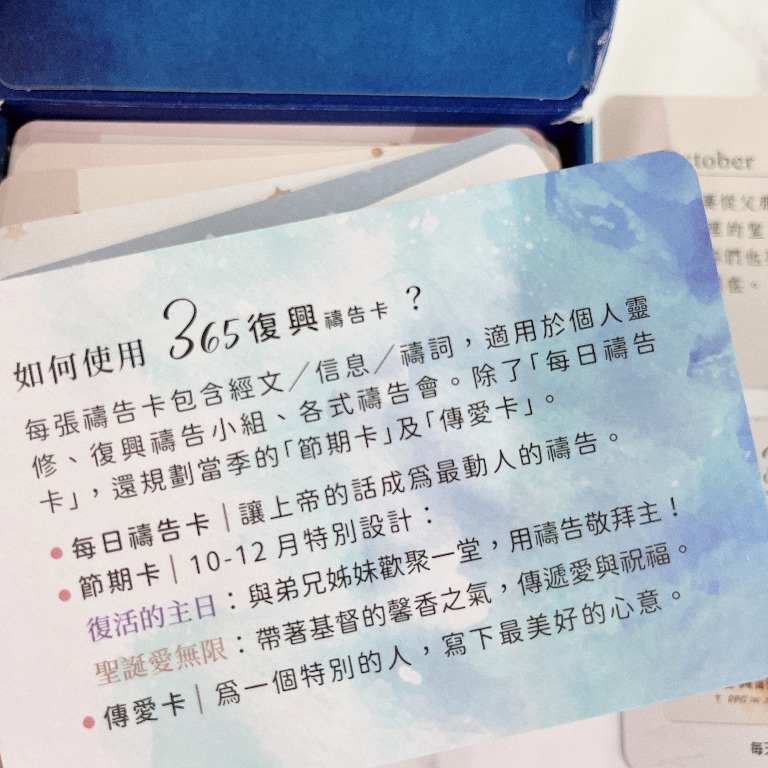 如何使用 365復興禱告卡？
每張禱告卡包含經文／信息／禱詞，適用於個人靈
修、復興禱告小組、各式禱告會。除了「每日禱告
卡」，還規劃當季的「節期卡」及「傳愛卡」。
• 每日禱告卡｜讓上帝的話成爲最動人的禱告。
• 節期卡｜10-12 月特別設計：
復活的主日：與弟兄姊妹歡聚一堂，用禱告敬拜主！
聖誕愛無限：帶著基督的馨香之氣，傳遞愛與祝福。
• 傳愛卡｜爲一個特別的人，寫下最美好的心意。
tober
從父
的聖
們也
在。
每天